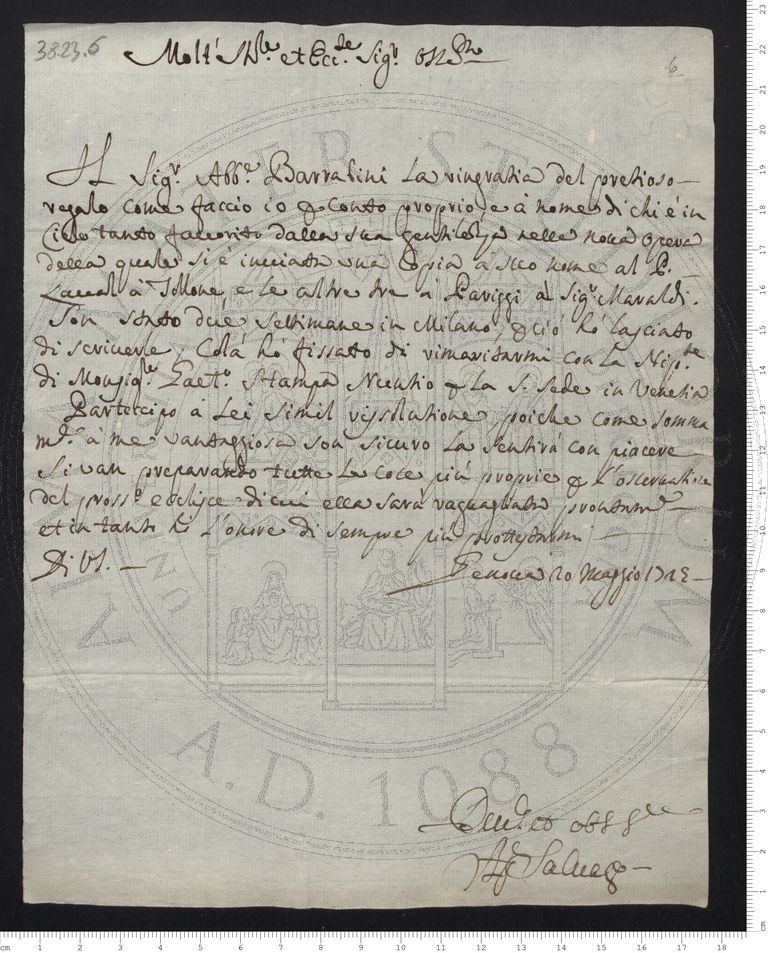 38.23.6
6
Molt' Ill.e et Ecc.te Sig.r
Il Sig.r Abb.e Barralini La ringratia del pretioso
regalo come faccio io p Conto proprio, e à nome di chi è in
Cielo tanto favorito dalla sua gentilezza nella nova Opera
della quale si è inviata una Copia à suo nome al P.
Laval à Tollone, e le altre tre à Pariggi à Sig.r Maraldi.
Son stato due Settimane in Milano, p ciò hò lasciato
di scriverle; Colà hò fissato di rimaritarmi con la Nip.te
di Monsig.re Gaet.o Stampa Nuntio p La S. Sede in Venetia
Partecipo à Lei simil rissolutione, poiche come somma
m.te à me vantaggiosa son sicuro La sentirà con piacere
Si van preparando tutte Le cose più proprie p L'osservatione
del pross.o ecclisse di cui ella sarà ragguagliata prontam.te
et in tanto hò L'onore di sempre più
Di VS.
Genova 20 Maggio
Dev.
Salvago
A.D. 1088